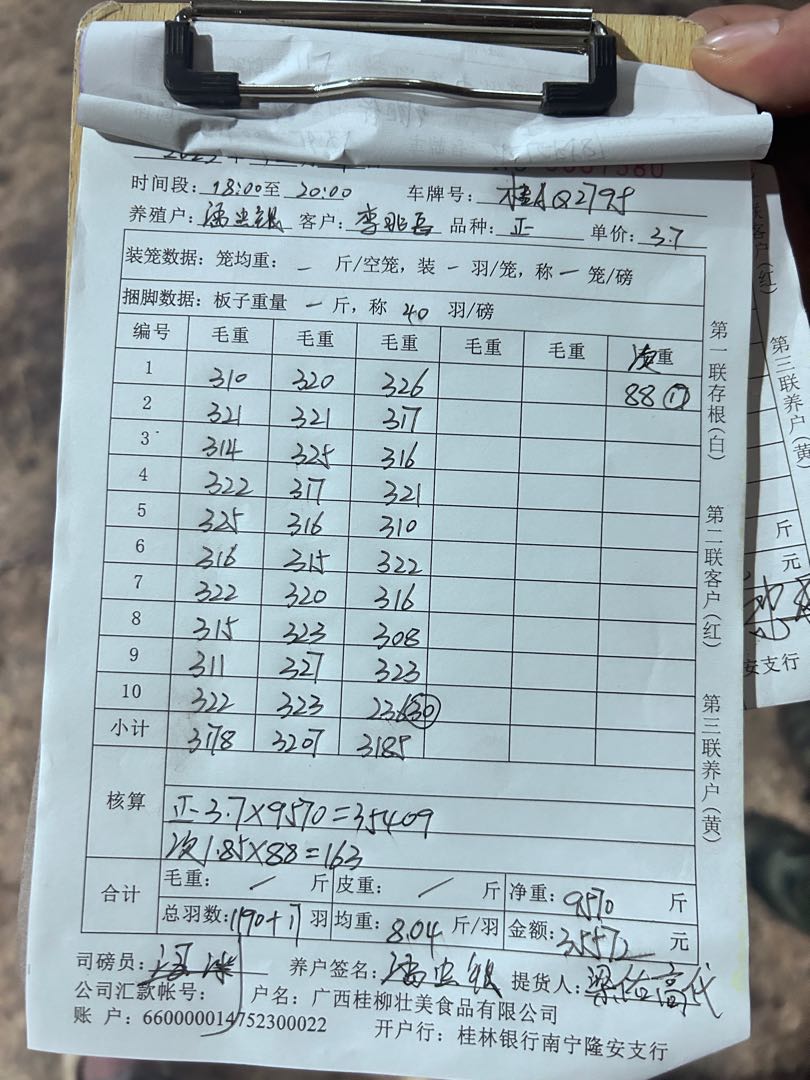 时间段: 18:00至 20:00 车牌号: 桂AQ279
养殖户: 客户: 李兆 品种: 正 单价: 3.7
装笼数据: 笼均重: - 斤/空笼, 装 - 羽/笼, 称 - 笼/磅
捆脚数据: 板子重量 - 斤, 称 40 羽/磅
编号 毛重 毛重 毛重 毛重 毛重 次重
1 310 320 326 88 ⑰
2 321 321 317
3 314 325 316
4 322 317 321
5 325 316 310
6 316 315 322
7 322 320 316
8 315 323 308
9 311 327 323
10 322 323 ㉚
小计 3178 3207 3185
核算
正-3.7×9570=35409
次1.85×88=163
合计
毛重: / 斤 皮重: / 斤 净重: 9570 斤
总羽数: 1190+17 羽 均重: 8.04 斤/羽 金额: 35572 元
司磅员: 养户签名: 提货人:
公司汇款帐号: 户名: 广西桂柳壮美食品有限公司
账 户: 660000014752300022 开户行: 桂林银行南宁隆安支行
第一联存根(白) 第二联客户(红) 第三联养户(黄)
客户(红) 第三联养户(黄)
斤
元
安支行